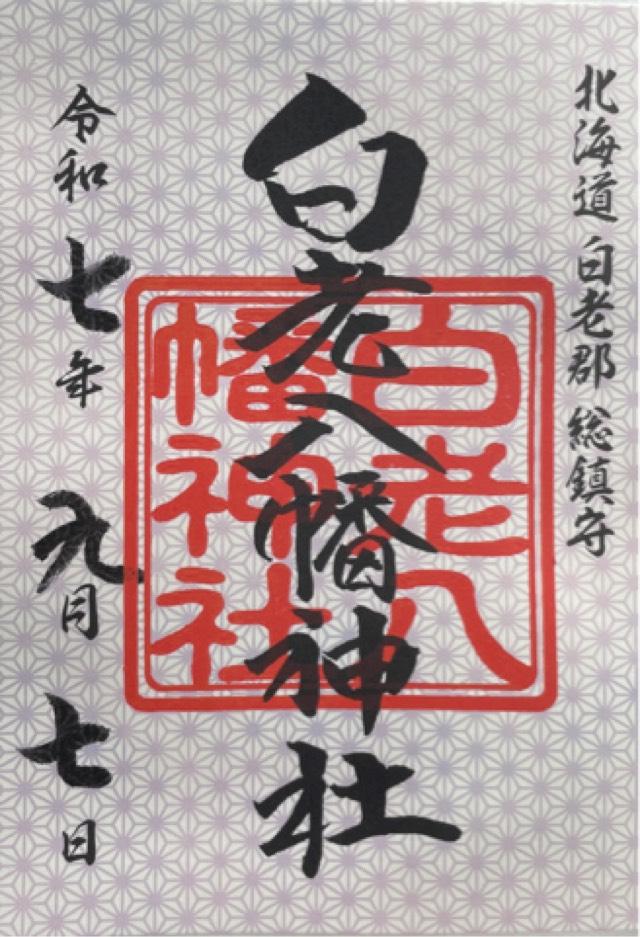 北海道 白老郡 総鎮守
白老八幡神社
白老八
幡神社
令和七年 九月七日